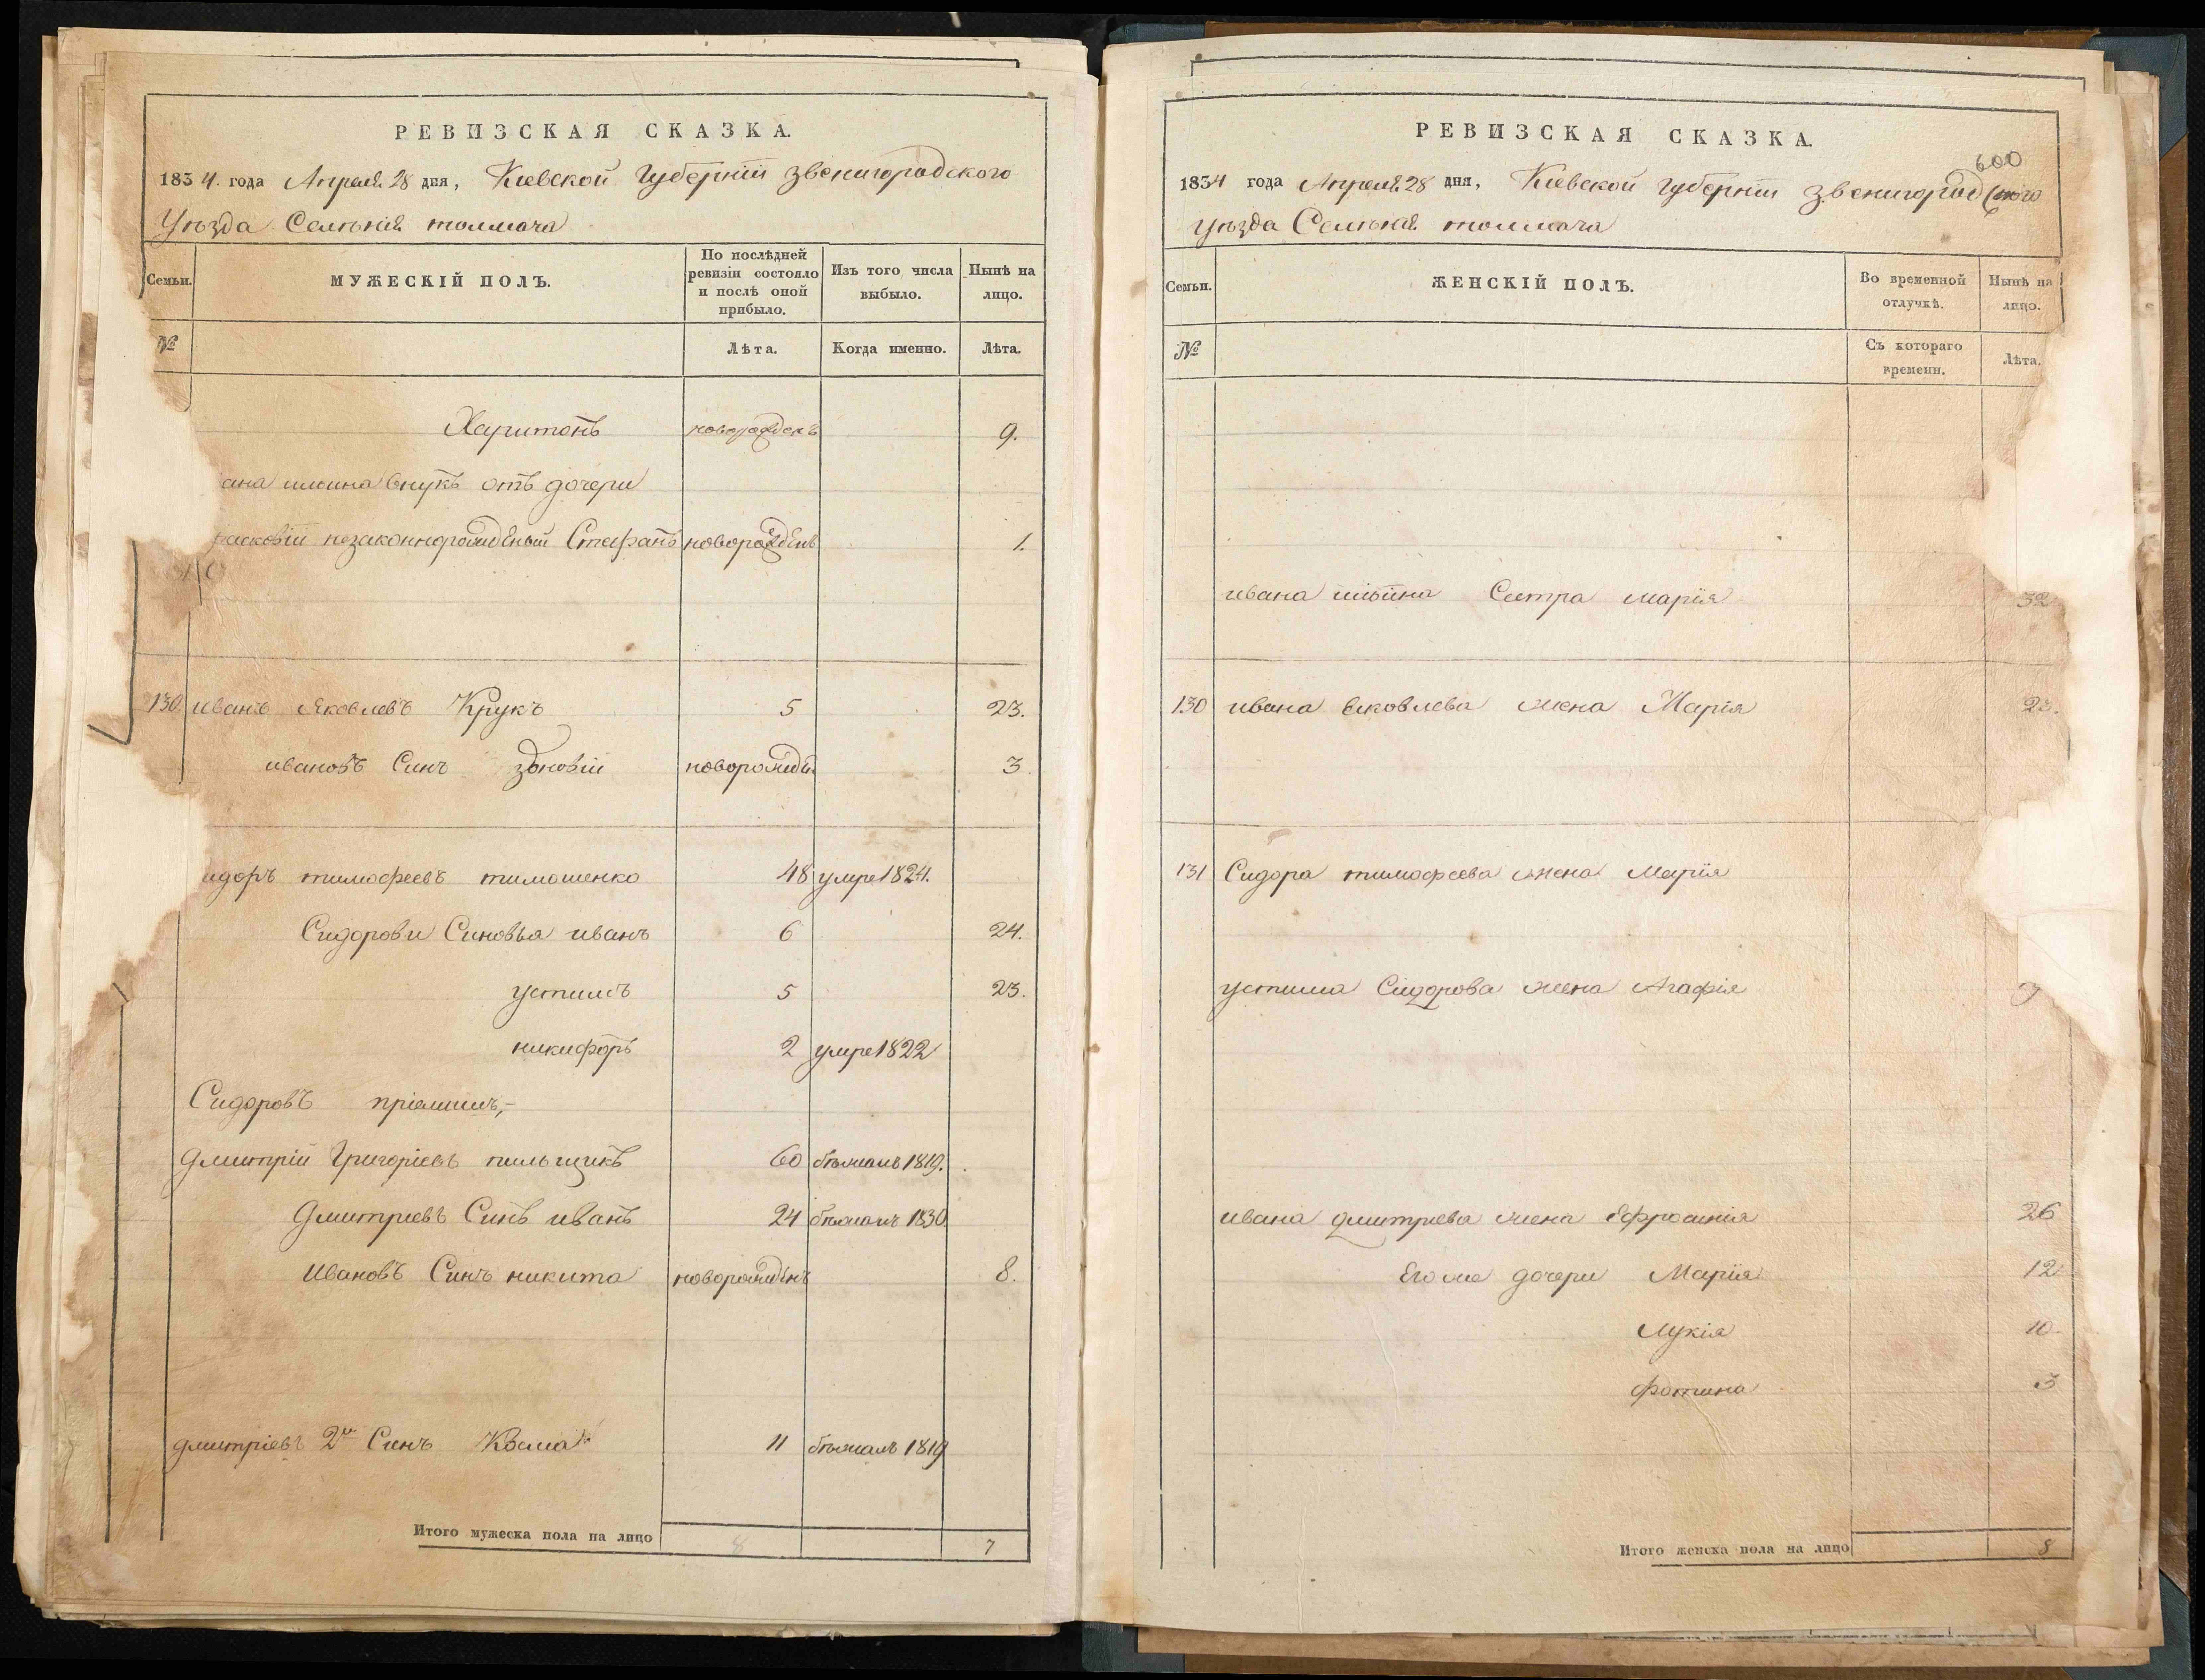 РЕВИЗСКАЯ СКАЗКА.
1834. года Апреля 28 дня, Киевской Губерніи Звенигородского
Уѣзда Селенія толмача
Семьи.
МУЖЕСКІЙ ПОЛЪ.
По послѣдней ревизіи состояло и послѣ оной прибыло.
Изъ того числа выбыло.
Нынѣ на лицо.
№
Лѣта.
Когда именно.
Лѣта.
Харитонъ новорожденъ 9.
ана илина внукъ отъ дочери
расковіи незаконнорожденый Стефанъ новорожденъ 1.
130 иванъ Яковлевъ Крукъ 5 23.
ивановъ Синъ зѣновій новорожде. 3.
идоръ тимофеевъ тимошенко 48 умре 1824.
Сидорови Синовья иванъ 6 24.
устимъ 5 23.
никифоръ 2 умре 1822
Сидоровъ пріемишъ,-
Дмитрій Григоріевъ пильщикъ 60 бѣжалъ 1819.
Дмитриевъ Синъ иванъ 24 бѣжалъ 1830
Ивановъ Синъ никита новорожденъ 8.
дмитріевъ 2й Синъ Косма 11 бѣжалъ 1819
Итого мужеска пола на лицо 8 7
600
РЕВИЗСКАЯ СКАЗКА.
1834 года Апреля 28 дня, Кіевской губерніи Звенигородского
уѣзда Селенія толмача
Семьи.
ЖЕНСКІЙ ПОЛЪ.
Во временной отлучкѣ.
Нынѣ на лицо.
№
Съ котораго времени.
Лѣта.
ивана ильина Сестра марія 32
130 ивана яковлева жена Марія 23.
131 Сидора тимофеева жена марія
устима Сидорова жена Агафія
ивана дмитріева жена Ефросинія 26
Его же дочери Марія 12
Лукія 10
фотина 3
Итого женска пола на лицо 8